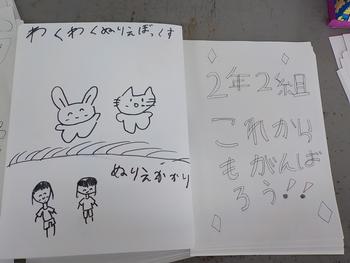 わくわくぬりえぼっくす
ぬりえかかり
2年2組
これから
もがんば
ろう!!